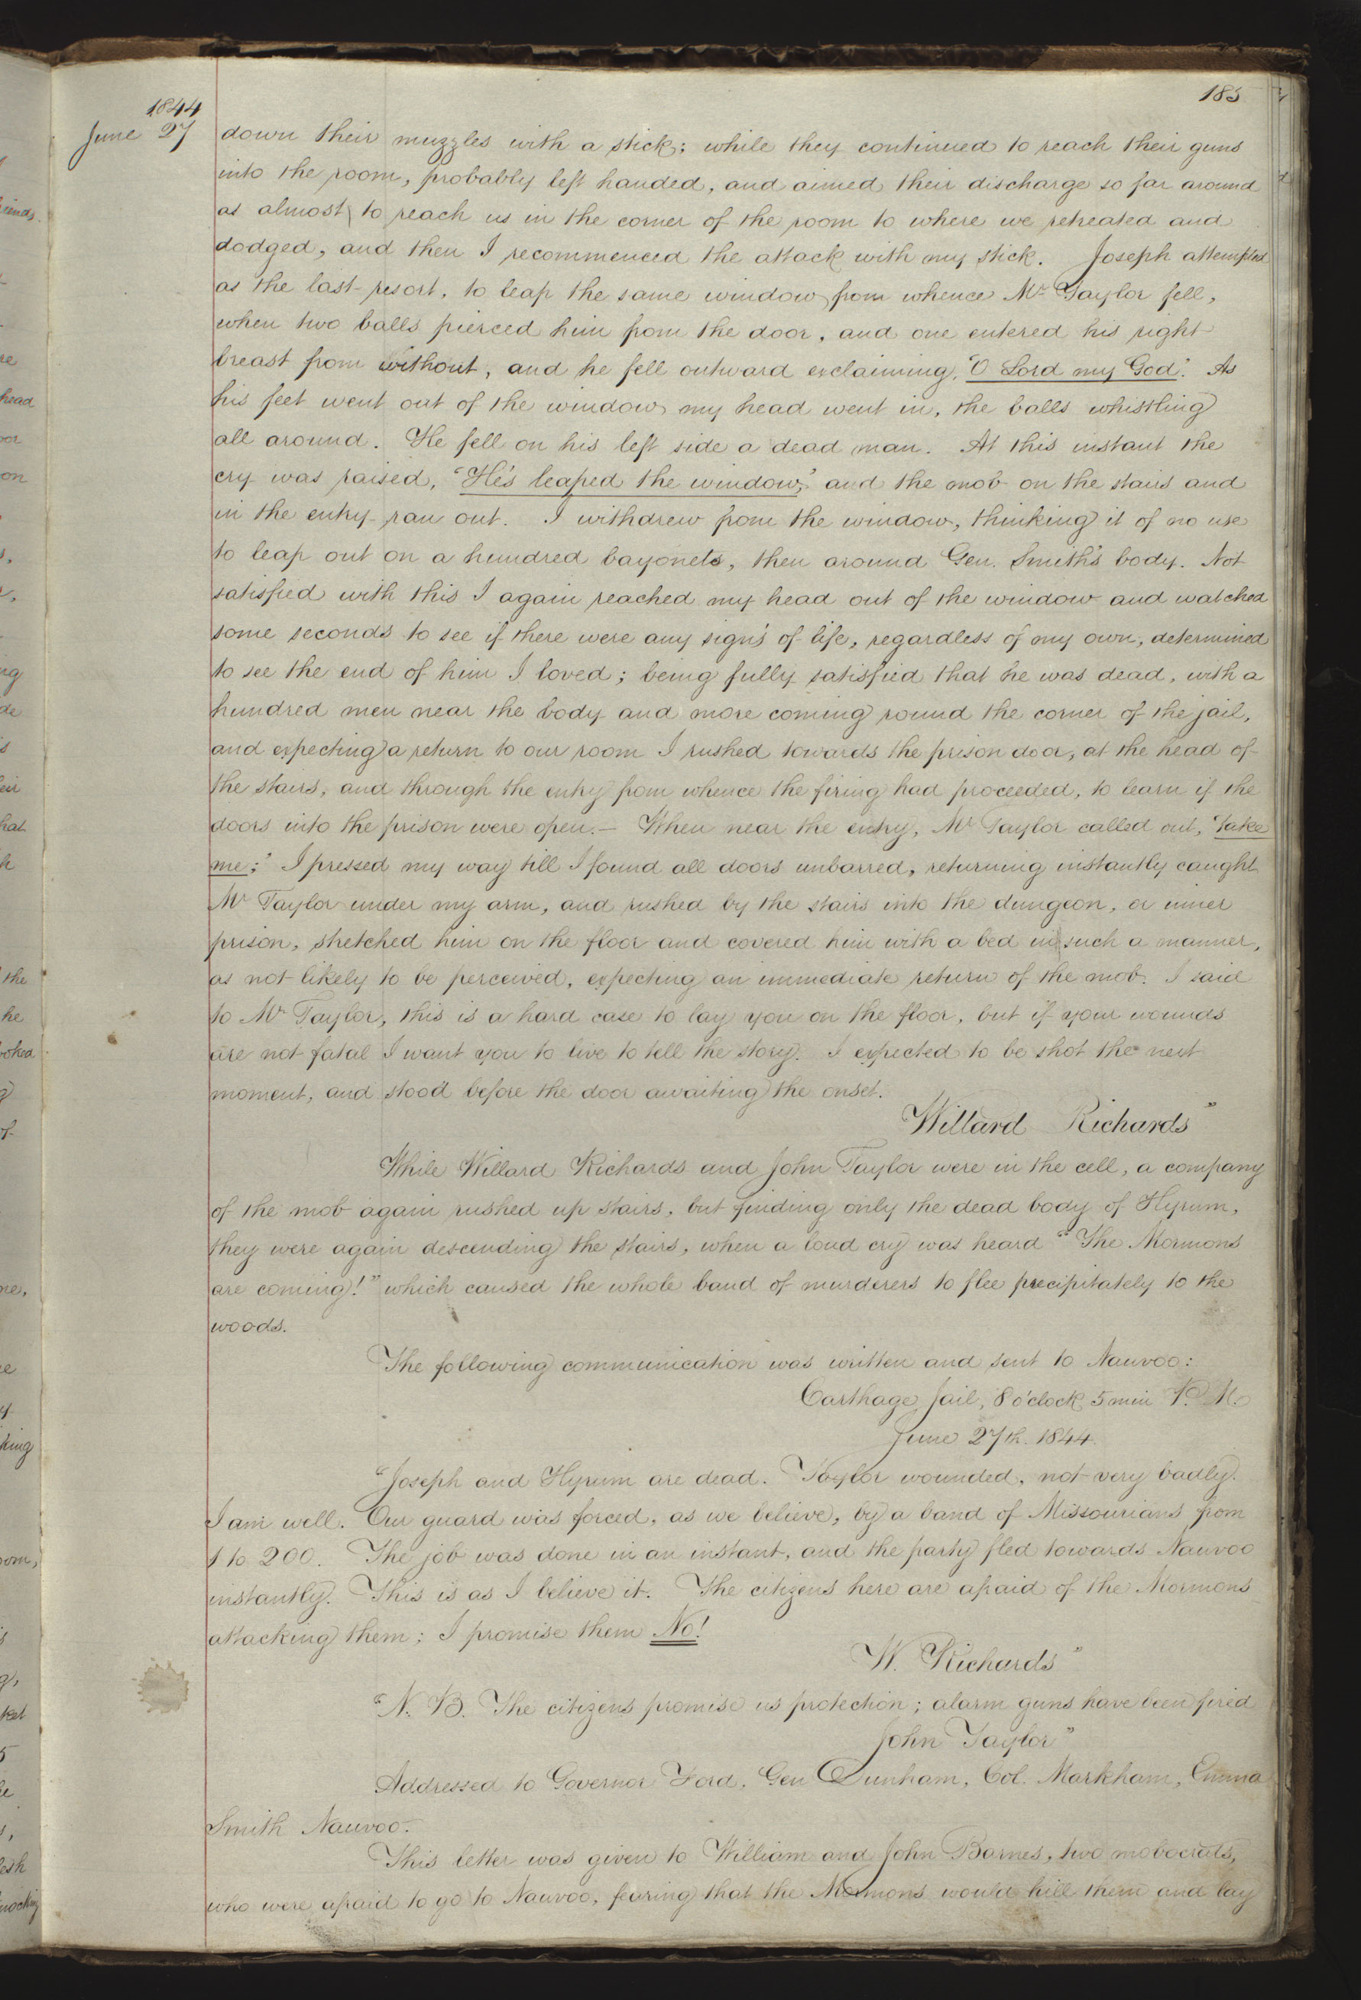 185
1844
June 27
down their muzzles with a stick; while they continued to reach their guns
into the room, probably left handed, and aimed their discharge so far around
as almost to reach us in the corner of the room to where we retreated and
dodged, and then I recommenced the attack with my stick. Joseph attempted
as the last resort, to leap the same window from whence Mr. Taylor fell,
when two balls pierced him from the door, and one entered his right
breast from without, and he fell outward exclaiming, "O Lord my God". As
his feet went out of the window my head went in, the balls whistling
all around. He fell on his left side a dead man. At this instant the
cry was raised, "He's leaped the window;" and the mob on the stairs and
in the entry ran out. I withdrew from the window, thinking it of no use
to leap out on a hundred bayonets, then around Gen. Smith's body. Not
satisfied with this I again reached my head out of the window and watched
some seconds to see if there were any signs of life, regardless of my own, determined
to see the end of him I loved; being fully satisfied that he was dead, with a
hundred men near the body and more coming round the corner of the jail,
and expecting a return to our room I rushed towards the prison door, at the head of
the stairs, and through the entry from whence the firing had proceeded, to learn if the
doors into the prison were open.— When near the entry, Mr Taylor called out, "take
me;" I pressed my way till I found all doors unbarred, returning instantly caught
Mr Taylor under my arm, and rushed by the stairs into the dungeon, or inner
prison, stretched him on the floor and covered him with a bed in such a manner,
as not likely to be perceived, expecting an immediate return of the mob. I said
to Mr Taylor, this is a hard case to lay you on the floor, but if your wounds
are not fatal I want you to live to tell the story. I expected to be shot the next
moment, and stood before the door awaiting the onset.
Willard Richards"
While Willard Richards and John Taylor were in the cell, a company
of the mob again rushed up stairs, but finding only the dead body of Hyrum,
they were again descending the stairs, when a loud cry was heard "The Mormons
are coming!" which caused the whole band of murderers to flee precipitately to the
woods.
The following communication was written and sent to Nauvoo:
Carthage Jail, 8 o'clock 5 min P. M.
June 27th. 1844.
"Joseph and Hyrum are dead. Taylor wounded, not very badly.
I am well. Our guard was forced, as we believe, by a band of Missourians from
1 to 200. The job was done in an instant, and the party fled towards Nauvoo
instantly. This is as I believe it. The citizens here are afraid of the Mormons
attacking them; I promise them No!
W. Richards"
"N. B. The citizens promise us protection; alarm guns have been fired
John Taylor"
Addressed to Governor Ford, Gen Dunham, Col. Markham, Emma
Smith Nauvoo.
This letter was given to William and John Barnes, two mobocrats,
who were afraid to go to Nauvoo, fearing that the Mormons would kill them and lay